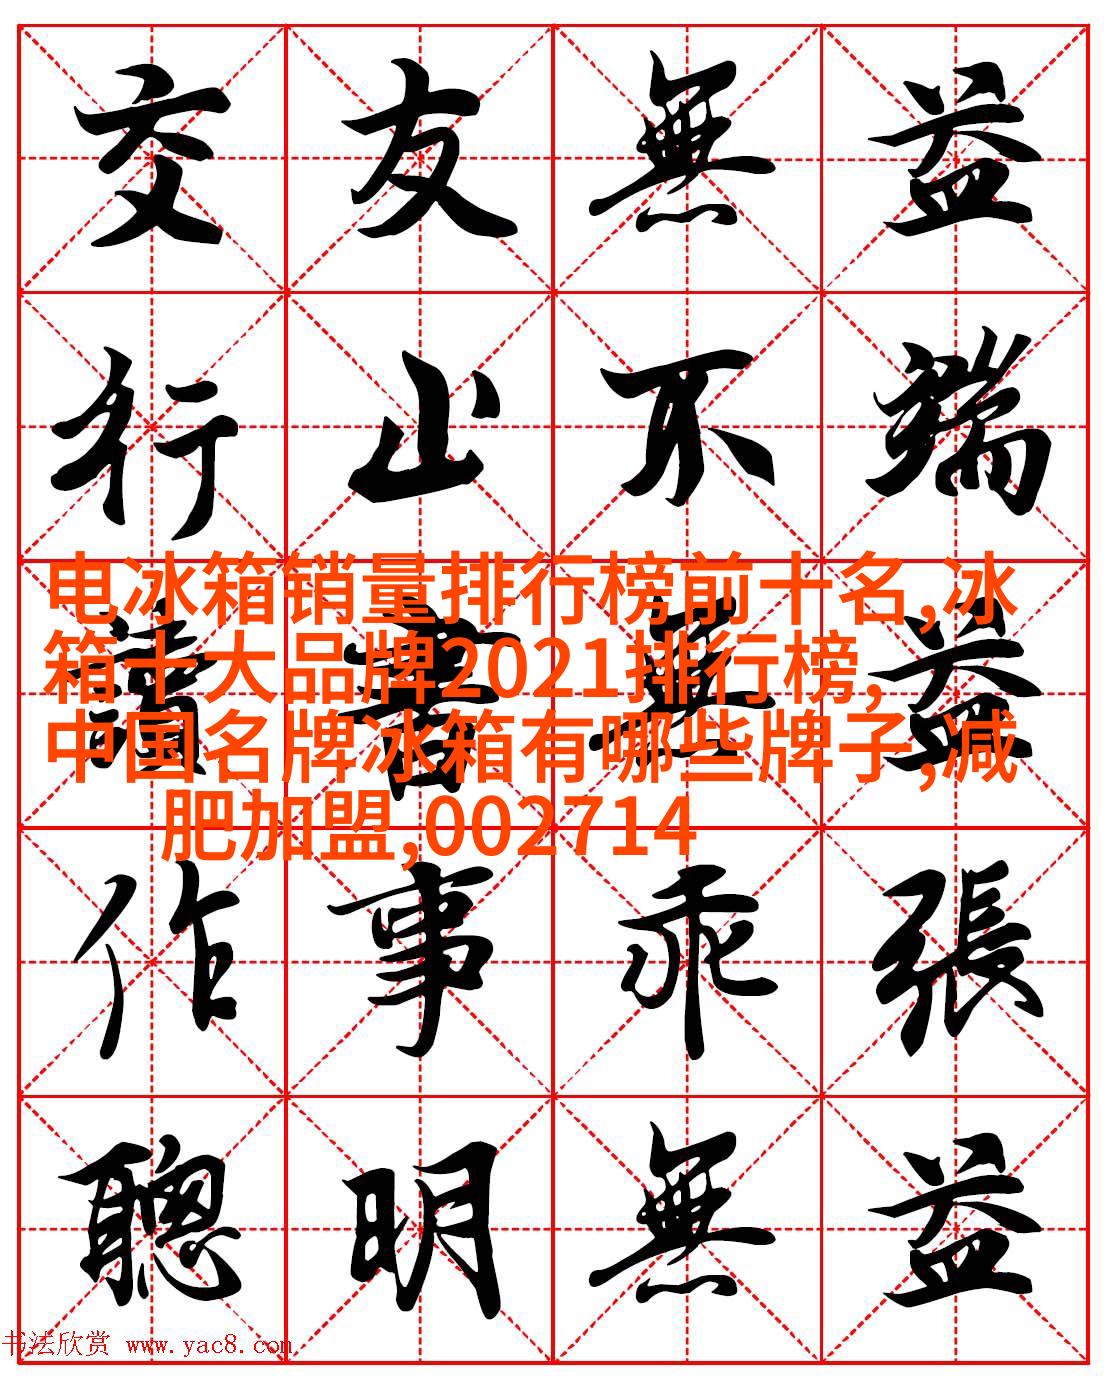 交友無益
行止不端
電冰箱销量排行榜前十名,冰
箱十大品牌2021排行榜,
中国名牌冰箱有哪些牌子,减
肥加盟,002714
讀書無益
作事乖張
聰明無益
书法欣赏 www.yac8.com